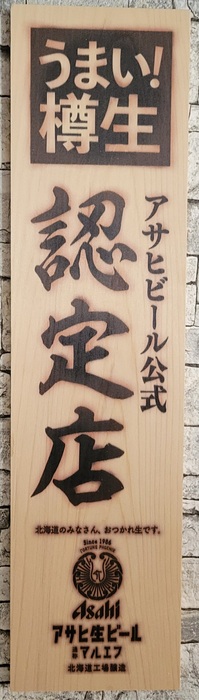 うまい!
樽生
アサヒビール公式
認定店
北海道のみなさん、おつかれ生です。
Since 1986
FORTUNE PHOENIX
Asahi
アサヒ生ビール
通称マルエフ
北海道工場醸造